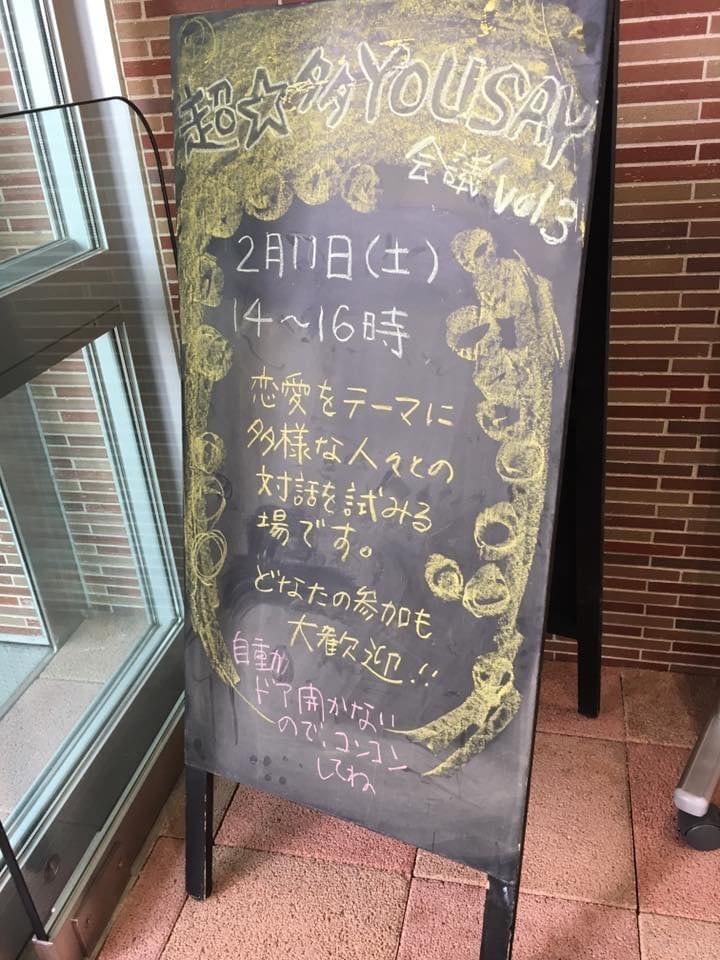 超☆多YOUSAY
会議vol3
2月11日(土)
14~16時
恋愛をテーマに
多様な人々との
対話を試みる
場です。
どなたの参加も
大歓迎!!
自動か
ドア開かない
ので、コンコン
してね